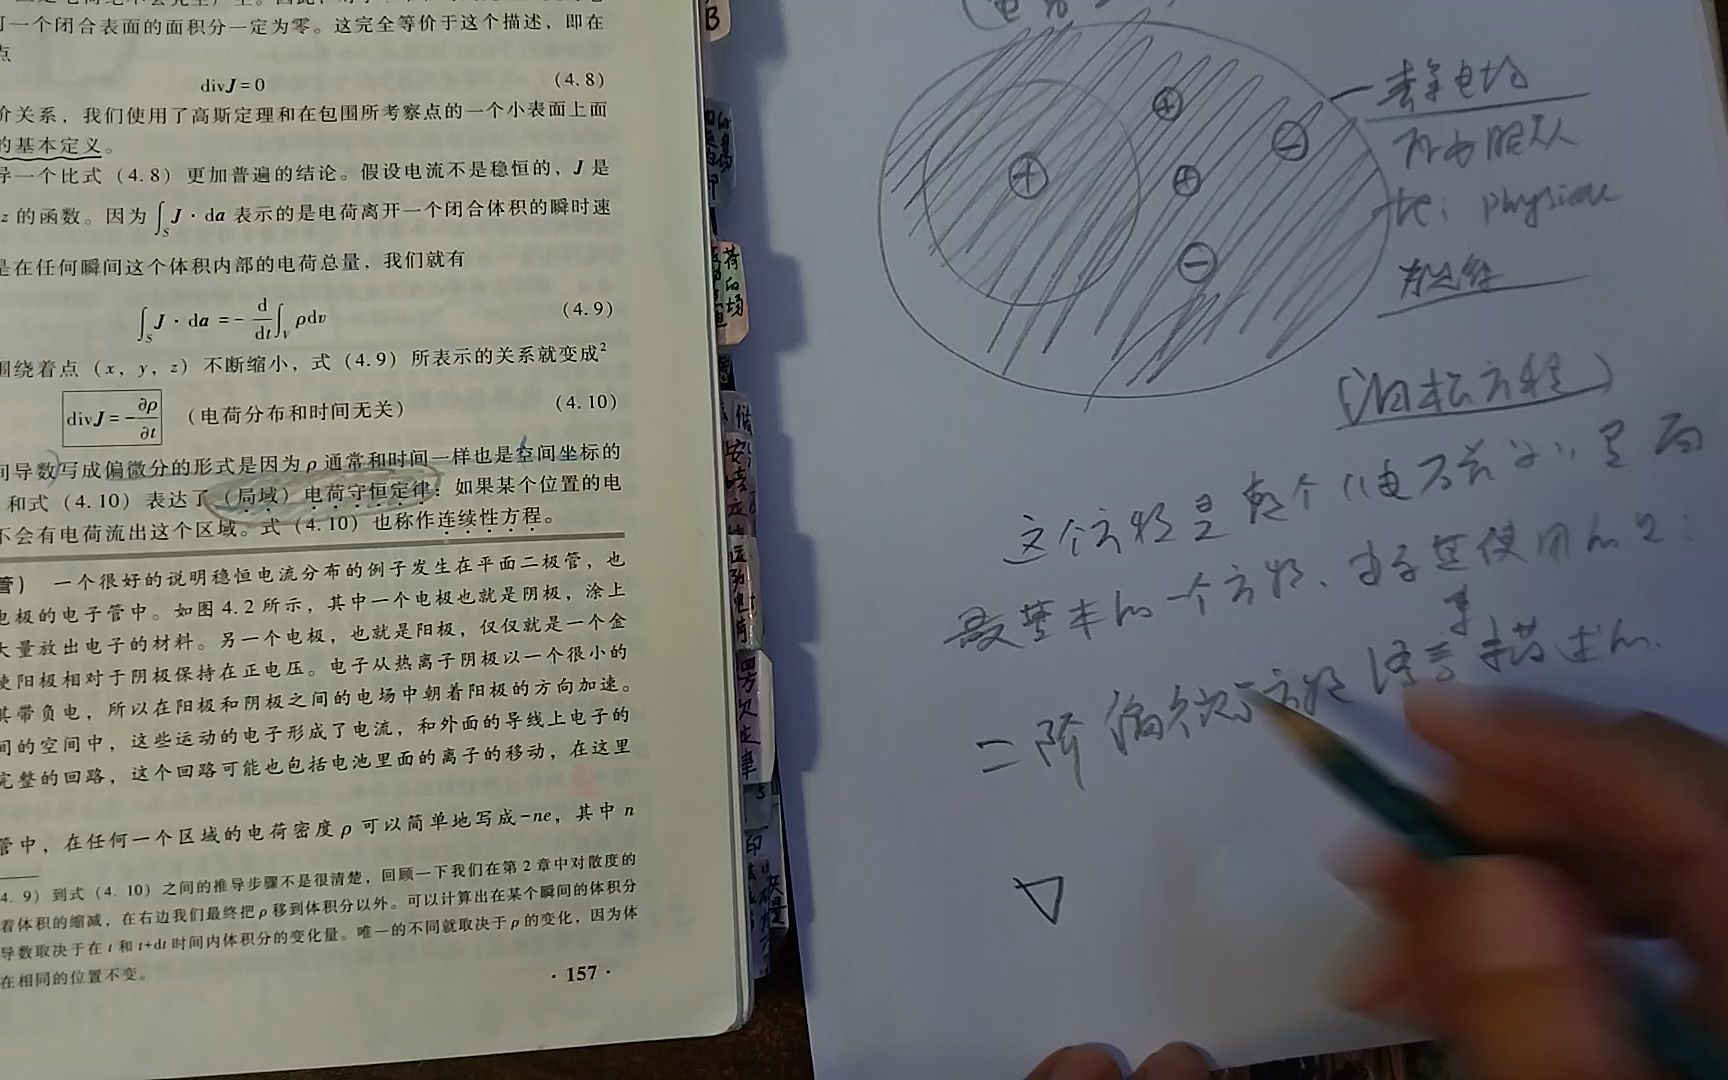 一个闭合表面的面积分一定为零。这完全等价于这个描述，即在
点
divJ=0 (4.8)
价关系，我们使用了高斯定理和在包围所考察点的一个小表面上面
的基本定义。
导一个比式（4.8）更加普遍的结论。假设电流不是稳恒的，J是
z的函数。因为∫_S J·da表示的是电荷离开一个闭合体积的瞬时速
是在任何瞬间这个体积内部的电荷总量，我们就有
∫_S J·da=-d/dt∫_V ρdv (4.9)
围绕着点（x，y，z）不断缩小，式（4.9）所表示的关系就变成²
divJ=-∂ρ/∂t （电荷分布和时间无关） (4.10)
间导数写成偏微分的形式是因为ρ通常和时间一样也是空间坐标的
和式（4.10）表达了（局域）电荷守恒定律：如果某个位置的电
不会有电荷流出这个区域。式（4.10）也称作连续性方程。
管） 一个很好的说明稳恒电流分布的例子发生在平面二极管，也
电极的电子管中。如图4.2所示，其中一个电极也就是阴极，涂上
大量放出电子的材料。另一个电极，也就是阳极，仅仅就是一个金
使阳极相对于阴极保持在正电压。电子从热离子阴极以一个很小的
其带负电，所以在阳极和阴极之间的电场中朝着阳极的方向加速。
间的空间中，这些运动的电子形成了电流，和外面的导线上电子的
完整的回路，这个回路可能也包括电池里面的离子的移动，在这里
管中，在任何一个区域的电荷密度ρ可以简单地写成-ne，其中n
4.9）到式（4.10）之间的推导步骤不是很清楚，回顾一下我们在第2章中对散度的
着体积的缩减，在右边我们最终把ρ移到体积分以外。可以计算出在某个瞬间的体积分
导数取决于在t和t+dt时间内体积分的变化量。唯一的不同就取决于ρ的变化，因为体
在相同的位置不变。
·157·
B
荷的场
劳仑定律
+
+
-
+
-
静电场
所由服从
的：physical
方程
（泊松方程）
这个方程是整个“电石兹”里面
最基本的一个方程、由于其使用的是：
二阶偏微分方程语言来描述的.
▽